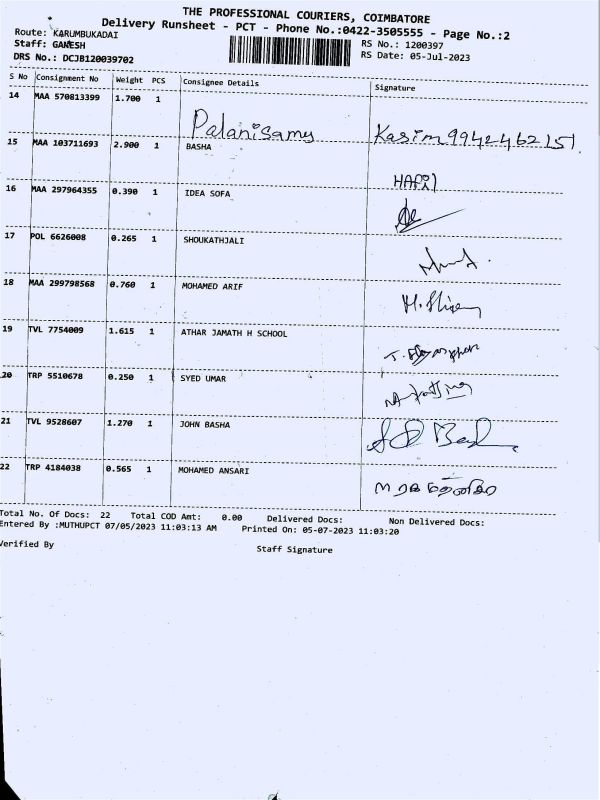 THE PROFESSIONAL COURIERS, COIMBATORE
Delivery Runsheet - PCT - Phone No.:0422-3505555 - Page No.:2
Route: KARUMBUKADAI
RS No.: 1200397
Staff: GANESH
RS Date: 05-Jul-2023
DRS No.: DCJB120039702
S No Consignment No Weight PCS Consignee Details Signature
14 MAA 570813399 1.700 1
Palanisamy Kasim 9942462151
15 MAA 103711693 2.900 1 BASHA
16 MAA 297964355 0.390 1 IDEA SOFA
17 POL 6626008 0.265 1 SHOUKATHJALI
18 MAA 299798568 0.760 1 MOHAMED ARIF
19 TVL 7754009 1.615 1 ATHAR JAMATH H SCHOOL
20 TRP 5510678 0.250 1 SYED UMAR
21 TVL 9528607 1.270 1 JOHN BASHA
22 TRP 4184038 0.565 1 MOHAMED ANSARI
Total No. Of Docs: 22 Total COD Amt: 0.00 Delivered Docs: Non Delivered Docs:
Entered By :MUTHUPCT 07/05/2023 11:03:13 AM Printed On: 05-07-2023 11:03:20
Verified By Staff Signature